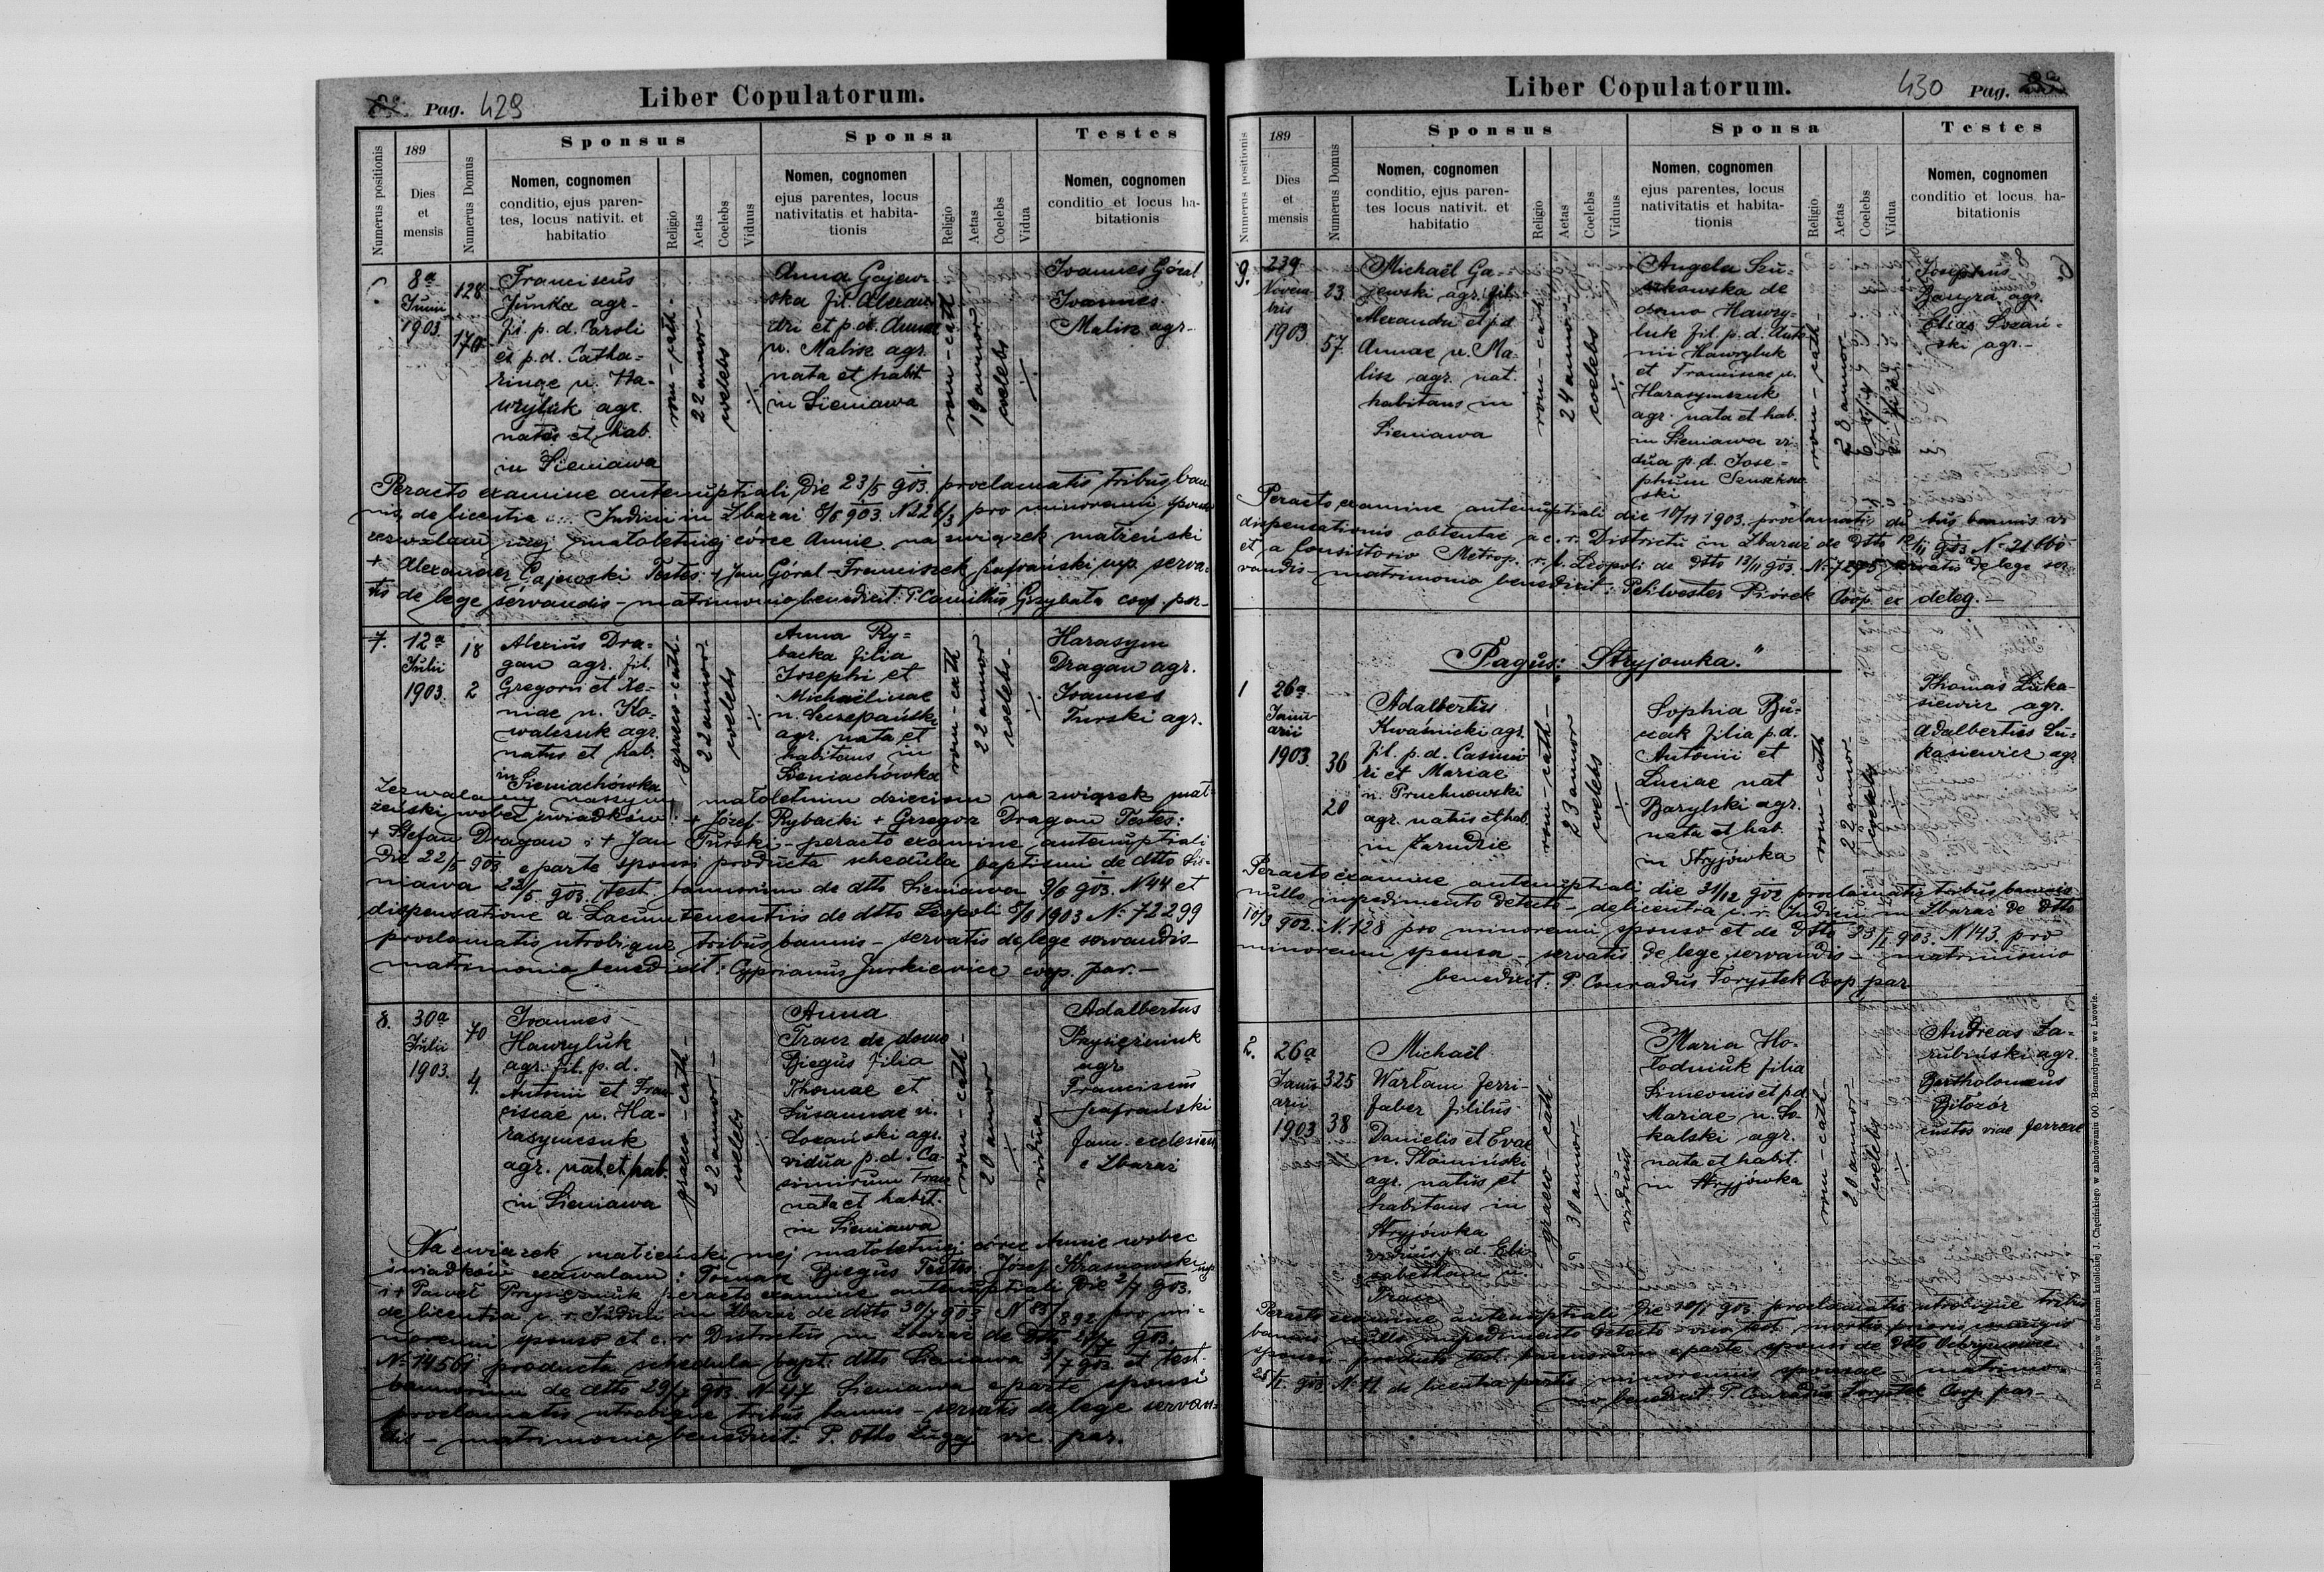 Pag. 429
Liber Copulatorum.
Numerus positionis
189
Dies
et
mensis
Numerus Domus
Sponsus
Nomen, cognomen
conditio, ejus paren-
tes, locus nativit. et
habitatio
Religio
Aetas
Coelebs
Viduus
Sponsa
Nomen, cognomen
ejus parentes, locus
nativitatis et habita-
tionis
Religio
Aetas
Coelebs
Vidua
Testes
Nomen, cognomen
conditio et locus ha-
bitationis
8a
Junii
1903
128
170
Franciscus
Junka agr.
fil. p. d. Caroli
et p. d. Catha-
rinae n. Ha-
wryluk agr.
natus et hab.
in Sieniawa
rom-cath-
22 annor-
coelebs
Anna Gajew-
ska fil. Alexan-
dri et p. d. Annae
n. Malisz agr.
nata et habit
in Sieniawa
rom-cath
19 annor
coelebs
Joannes Góral
Joannes
Malisz agr-
Peracto examine antenuptiali die 23/5 903. proclamatis tribus ban-
nis, de licentia Judicii in Zbaraż 8/6 903. pro minorenni
zezwalam mej małoletniej córce Annie na związek małżeński
+ Alexander Gajewski Testes: + Jan Góral - Franciszek Zafrański mp. serva-
tis de lege servandis - matrimonio benedixit: P. Camillus Grzybała coop. par-
7.
12a
Julii
1903.
18
2
Alexius Dra-
gan agr. fil.
Gregorii et Xe-
niae n. Ko-
walczuk agr.
natus et hab.
in Sieniachówka
graeco-cath-
22 annor-
coelebs
Anna Ry-
backa filia
Josephi et
Michaëlinae
n. Szczepański
agr. nata et
habitans in
Sieniachówka
rom-cath
22 annor
coelebs-
Harasym
Dragan agr.
Joannes
Turski agr.
Zezwalamy naszym małoletnim dzieciom na związek mał-
żeński wobec świadków: + Józef Rybacki + Grzegorz Dragan Testes:
+ Stefan Dragan i + Jan Turski - peracto examine antenuptiali
die 22/5 903 e parte sponsi producta schedula baptismi de dtto Sie-
niawa 22/5 903. test. bannorum de dtto Sieniawa 9/6 903. N 44 et
dispensatione a Locumtenentiis de dtto Leopoli 5/6 1903 N. 72299
proclamatis utrobique tribus bannis - servatis de lege servandis-
matrimonio benedixit: Cyprianus Jurkiewicz coop. par.-
8.
30a
Julii
1903.
70
4.
Joannes
Hawryluk
agr. fil. p. d.
Antonii et Fran-
ciscae n. Ha-
rasymczuk
agr. nat. et hab.
in Sieniawa
graeco-cath-
22 annor-
coelebs
Anna
Tracz de domo
Biegus filia
Thomae et
Susannae n.
Łozański agr.
vidua p. d. Ca-
simirum Tracz
nata et habit.
in Sieniawa
rom-cath-
20 annor
vidua
Adalbertus
Przysiężniuk
agr
Franciscus
Zafrański
fam. ecclesiae
e Zbaraż
Na związek małżeński mej małoletniej córce Annie wobec
świadków zezwalam: Tomasz Biegus Testes: Józef Krasnowski mp
i + Paweł Przysiężniuk peracto examine antenuptiali die 2/7 903.
de licentia c. r. Judicii in Zbaraż de dtto 30/7 903 N pro mi-
norenni sponso et c. r. Districtus in Zbaraż de Dtto 903.
N. 14561 producta schedula bapt. dtto Sieniawa 903 et test.
bannorum de dtto 29/7 903 N 47 Sieniawa e parte sponsi
proclamatis utrobique tribus bannis - servatis de lege servan-
dis - matrimonio benedixit: P. Otto Ługaj vic par.
Liber Copulatorum.
430 Pag.
Numerus positionis
189
Dies
et
mensis
Numerus Domus
Sponsus
Nomen, cognomen
conditio, ejus paren-
tes locus nativit. et
habitatio
Religio
Aetas
Coelebs
Viduus
Sponsa
Nomen, cognomen
ejus parentes, locus
nativitatis et habita-
tionis
Religio
Aetas
Coelebs
Vidua
Testes
Nomen, cognomen
conditio et locus ha-
bitationis
9.
239
Novem
bris
1903
23
57.
Michaël Ga-
jewski agr. fil.
Alexandri et p.d
Annae n. Ma-
lisz agr. nat.
habitans in
Sieniawa
rom-cath
24 annor
coelebs
Angela Szu-
szkowska de
domo Hawry-
luk fil. p. d. Anto
nii Hawryluk
et Franciscae n.
Harasymczuk
agr. nata et hab.
in Sieniawa vi-
dua p. d. Jose-
phum Szuszkow
ski
rom-cath-
28 annor-
Josephus
agr.
Elias Łozań-
ski agr.-
Peracto examine antenuptiali die 10/11 1903. proclamatis duobus bannis vi
dispensationis obtentae a c. r. Districtu in Zbaraż de dtto 903 N. 21660
et a Consistorio Metrop. r. l. Leopoli de dtto 13/11 903. servatis de lege ser-
vandis - matrimonio benedixit: P. Silvester Piórek Coop ex deleg.-
Pagus: "Stryjowka."
1
26a
Janu-
arii
1903
36
20
Adalbertus
Kwaśnicki agr.
fil. p. d. Casimi-
ri et Mariae
n. Pruchnowski
agr. natus et hab.
in Zarudzie
rom-cath-
23 annor
coelebs
Sophia Bu-
czak filia p. d.
Antonii et
Luciae nat
Barylski agr.
nata et hab.
in Stryjówka
rom-cath
22 annor-
coelebs
Thomas Łuka-
siewicz agr.
Adalbertus Łu-
kasiewicz agr
Peracto examine antenuptiali die 31/12 902 proclamatis tribus bannis
nullo impedimento detecto - de licentia c. r. Judicii in Zbaraż de dtto
10/9 902. N. 128 pro minorenni sponso et de dtto 23/1 903. N 143. pro
minorenni sponsa - servatis de lege servandis - matrimonio
benedixit: P. Conradus Forystek Coop par
2.
26a
Janu-
arii
1903
325
38
Michaël
Warłam ferri-
faber filius
Danielis et Evae
n. Słomiński
agr. natus et
habitans in
Stryjówka
viduus p. d. Eli-
sabetham n.
Tracz
graeco-cath-
30 annor-
viduus
Maria Ho-
łodniuk filia
Simeonis et p d
Mariae n. So-
kalski agr.
nata et habit.
in Stryjówka
rom-cath-
20 annor-
coelebs
Andreas Za-
rubiński agr.
Bartholomaeus
Biłozór
custos viae ferreae
Peracto examine antenuptiali die 10/1 903 proclamatis utrobique tribus
bannis nullo impedimento detecto - viso test. mortis prioris conjugis
sponsi - producto test. bannorum e parte sponsi de dtto
25/1 903 N. 11 de licentia patris minorennis sponsae matrimo-
nio benedixit P. Conradus Forystek Coop par-
Do nabycia w drukarni katolickiej J. Chęcińskiego w zabudowaniu OO. Bernardynów we Lwowie.